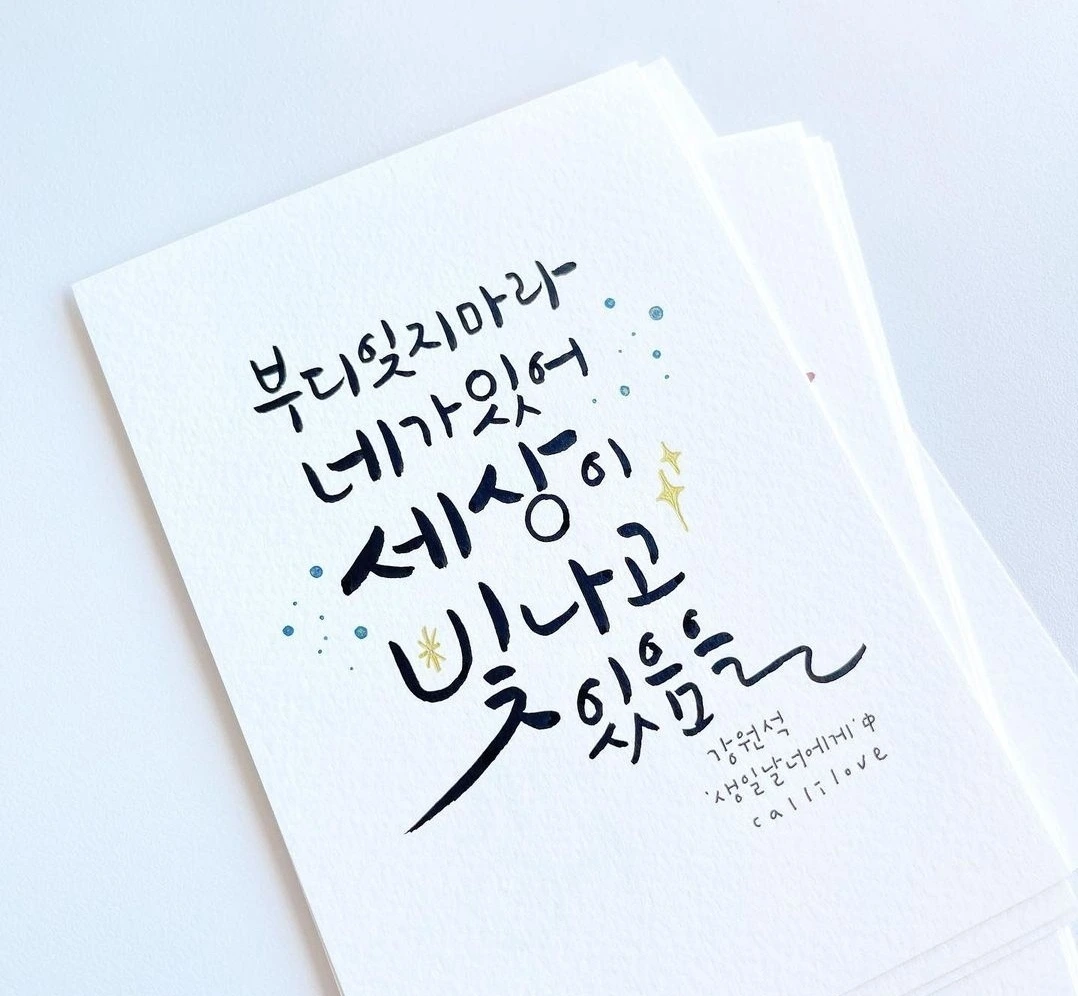 부디잊지마라
네가있어
세상이
빛나고
있음을
강원석
'생일날너에게'中
callilove